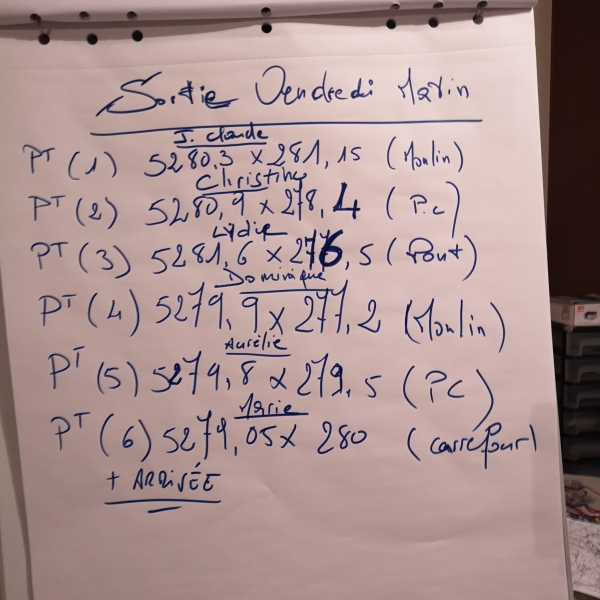 Sortie Vendredi Matin
J. Claude
PT (1) 5280,3 x 281,15 (Moulin)
Christine
PT (2) 5280,9 x 278,4 (P.c)
Lydie
PT (3) 5281,6 x 276,5 (Pont)
Dominique
PT (4) 5279,9 x 277,2 (Moulin)
Aurélie
PT (5) 5279,8 x 279,5 (PC)
Marie
PT (6) 5279,05 x 280 (carrefour)
+ ARRIVÉE